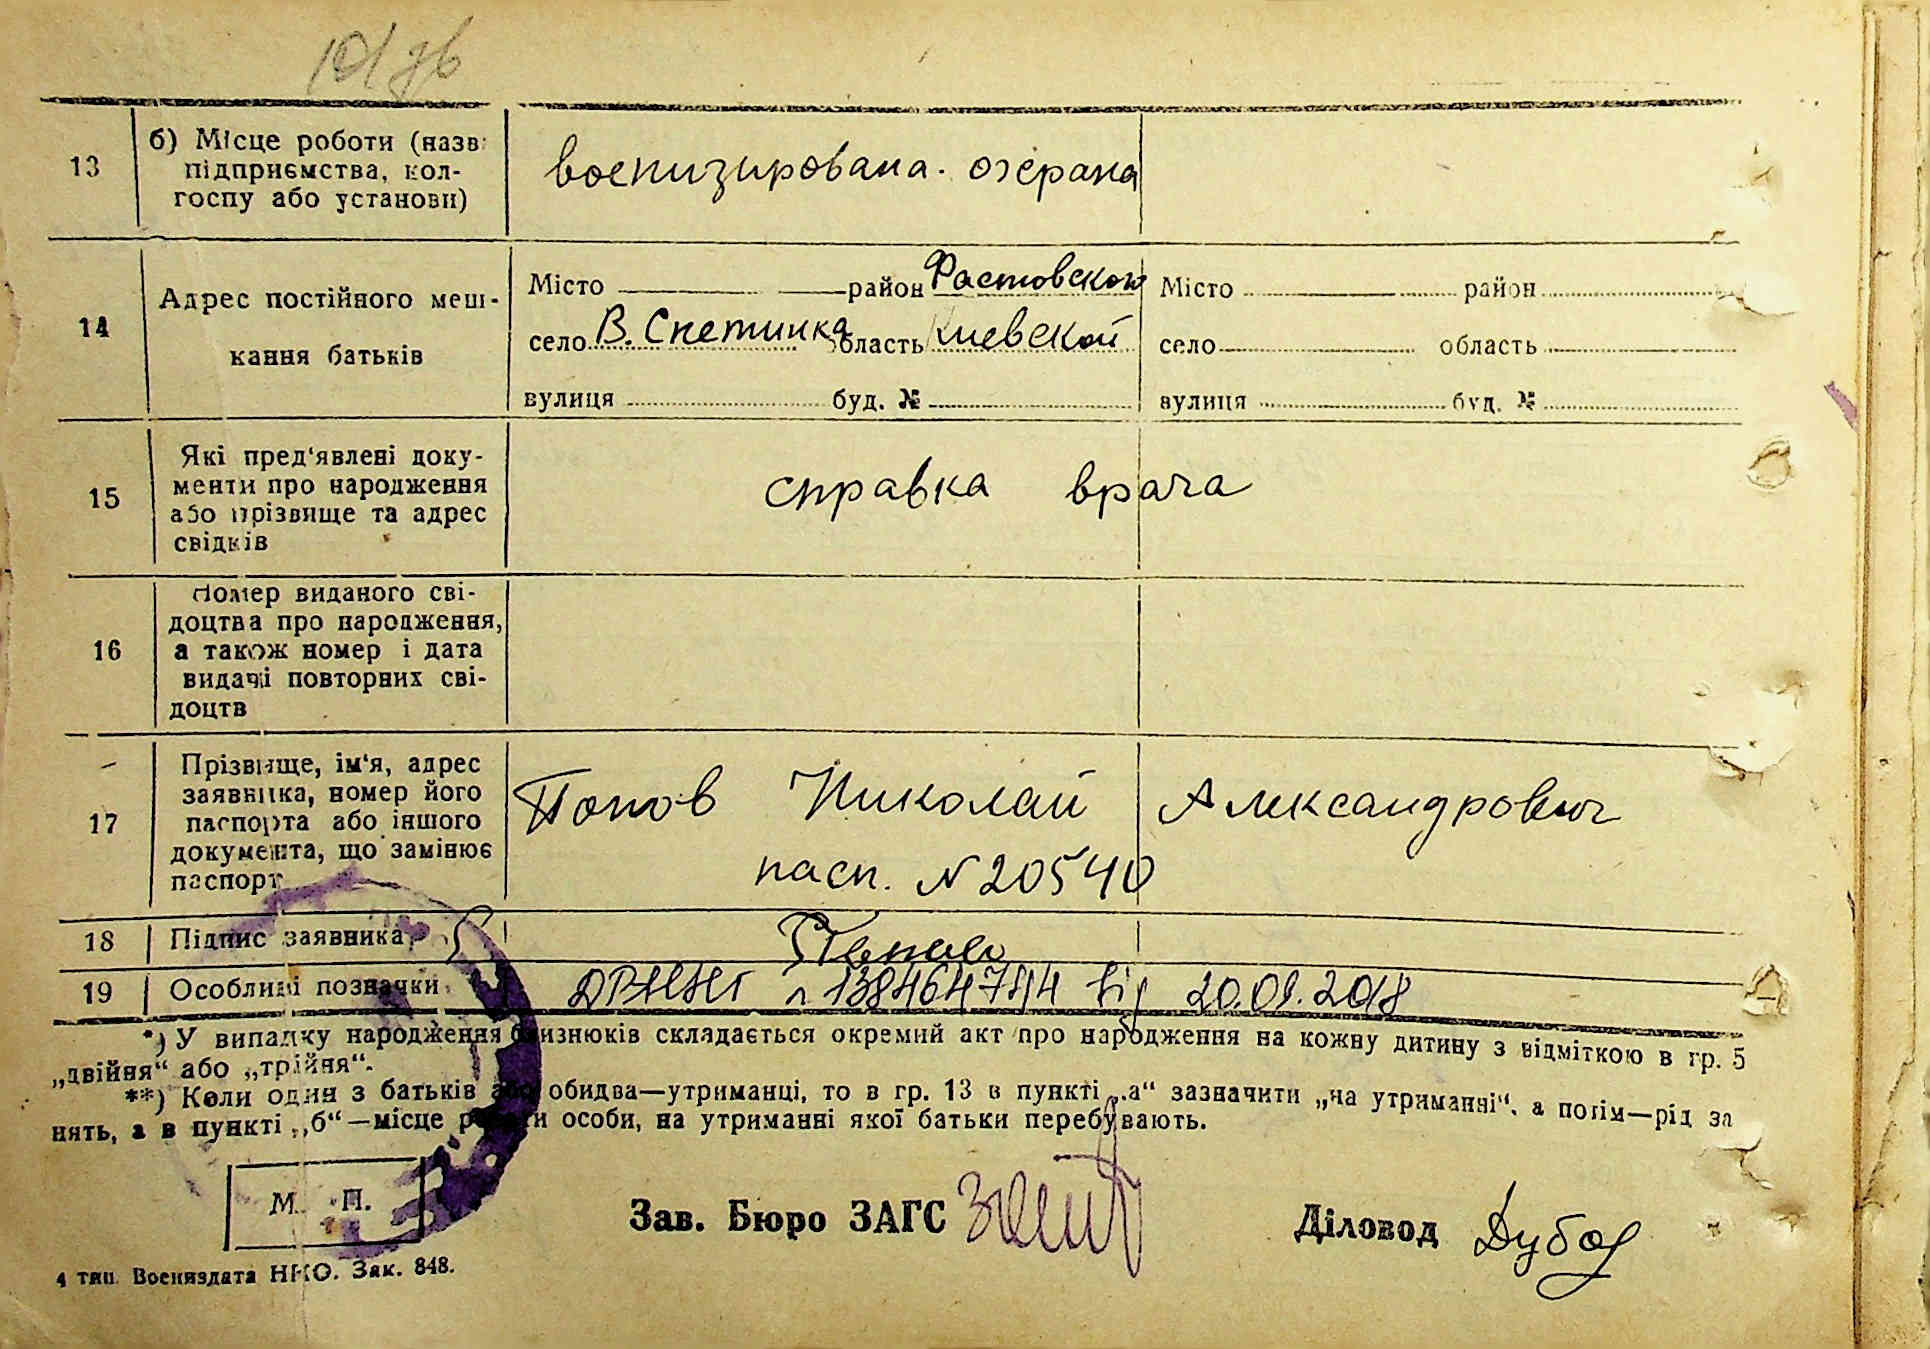 13
б) Місце роботи (назв
підприємства, кол-
госпу або установи)
военизирована. охрана
14
Адрес постійного меш-
кання батьків
Місто район Фастовского
село В. Снетинка область Киевской
вулиця буд. №
Місто район
село область
вулиця буд. №
15
Які пред'явлені доку-
менти про народження
або прізвище та адрес
свідків
справка врача
16
Номер виданого сві-
доцтва про народження,
а також номер і дата
видачі повторних сві-
доцтв
17
Прізвище, ім'я, адрес
заявника, номер його
паспорта або іншого
документа, що замінює
паспорт
Попов Николай Александрович
пасп. N 20540
18 Підпис заявника
19 Особливі позначки
від 20.09.2018
*) У випадку народження близнюків складається окремий акт про народження на кожну дитину з відміткою в гр. 5
„двійня“ або „трійня“.
**) Коли один з батьків або обидва—утриманці, то в гр. 13 в пункті „а“ зазначити „на утриманні“, а потім—рід за
нять, а в пункті „б“—місце роботи особи, на утриманні якої батьки перебувають.
М. П.
Зав. Бюро ЗАГС
Діловод
4 тип. Воениздата НКО. Зак. 848.